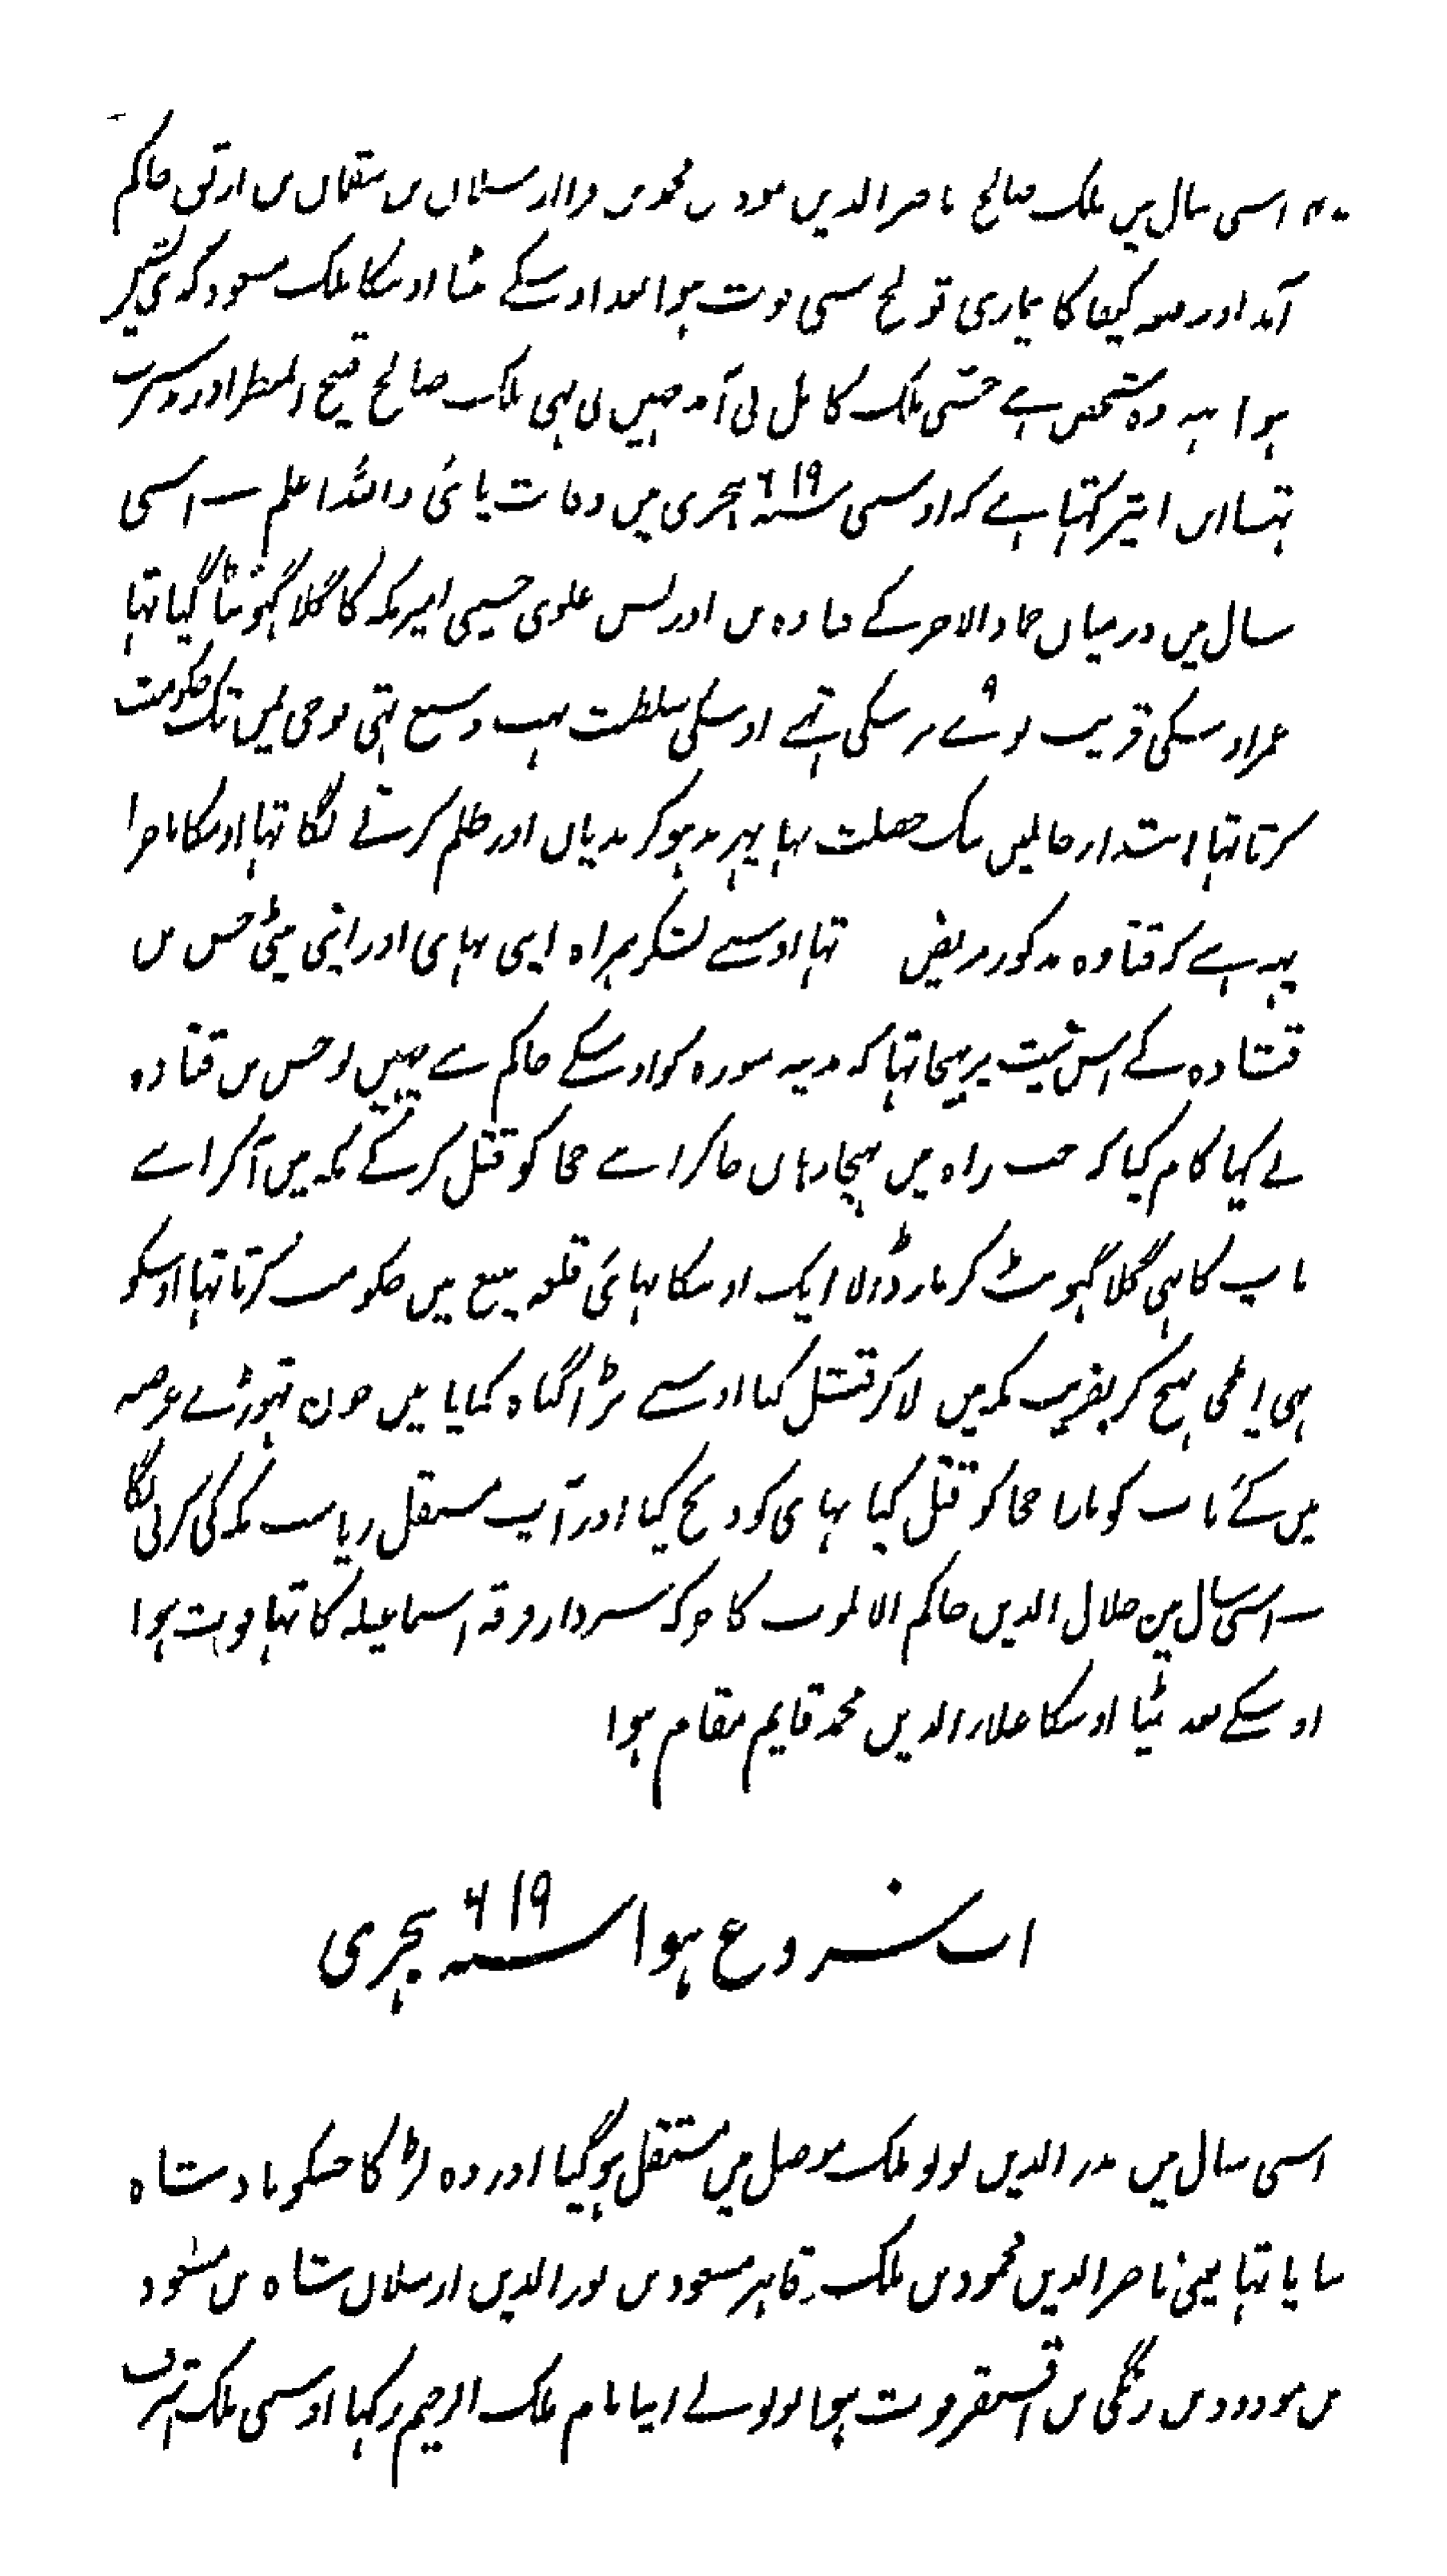 اسی سال میں ملک صالح ناصر الدین محمود بن محمد بن قرا ارسلان بن سقمان بن ارتق حاکم
آمد اور حصہ کیفا کا بیماری قولنج سی فوت ہوا بعد اوسکے بیٹا اوسکا ملک مسعود
ہوا یہہ وہ شخص ہے جسی ملک کامل نی آمد چہین لی تہی ملک صالح قبیح المنظر اور
تہا ابن اثیر کہتا ہے کہ اوسی سنہ ۶۱۹ ہجری میں وفات پائی واللہ اعلم — اسی
سال میں درمیان جماد الاخر کے قتادہ بن ادریس علوی حسینی امیر مکہ کا گلا گہونٹا گیا تہا
عمر اوسکی قریب نوے ۹ برسکی تہے اوسکی سلطنت بہت وسیع تہی نواحی یمن تک حکومت
کرتا تہا ابتداء حالمیں نیک خصلت تہا پہر بد ہوکر بدیاں اور ظلم کرنے لگا تہا اوسکا ماجرا
یہہ ہے کہ قتادہ مذکور مریض تہا اوسے لشکر ہمراہ اپنی بہای اور اپنی بیٹی حسن بن
قتادہ کے اس نیت پر بہیجا تہا کہ مدینہ منورہ کو اوسکے حاکم سے چہین لو حسن بن قتادہ
نے کہا کام کیا کہ جب راہ میں پہنچا وہاں جاکر اے چچا کو قتل کرکے مکہ میں آکر اے
باپ کا بہی گلا گہونٹ کر مار ڈالا ایک اوسکا بہائی قلعہ ینبع میں حکومت کرتا تہا اوسکو
بہی ایلچی بہیج کر بفریب مکہ میں لاکر قتل کیا اوسے بڑا گناہ کمایا یہیں خون تہوڑے عرصہ
میں کئے باپ کو مارا چچا کو قتل کیا بہای کو ذبح کیا اور آپ مستقل ریاست مکہ کی کرنی لگا
— اسی سال مین جلال الدین حاکم الالموت کا جو کہ سردار فرقہ اسماعیلہ کا تہا فوت ہوا
اوسکے بعد بیٹا اوسکا علاء الدین محمد قایم مقام ہوا
اب شروع ہوا سنہ ۶۱۹ ہجری
اسی سال میں بدر الدین لولو ملک موصل میں مستقل ہوگیا اور وہ لڑکا جسکو بادشاہ
بنایا تہا یعنی ناصر الدین محمود بن ملک قاہر مسعود بن نور الدین ارسلان شاہ بن مسعود
بن مودود بن زنگی بن اقسنقر فوت ہوا لولو نے اپنا نام ملک الرحیم رکہا اوسی ملک اشرف